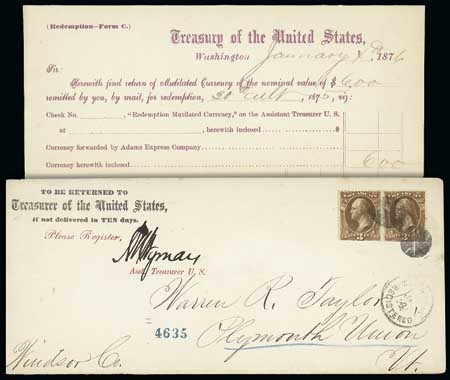 (Redemption—Form C.)
Treasury of the United States,
Washington January 1876
Sir:
Herewith find return of Mutilated Currency of the nominal value of $ 6.00
remitted by you, by mail, for redemption, 30 Ult 1875, viz:
Check No. , "Redemption Mutilated Currency," on the Assistant Treasurer U. S.
at , herewith inclosed $
Currency forwarded by Adams Express Company
Currency herewith inclosed 6 00
TO BE RETURNED TO
Treasurer of the United States,
if not delivered in TEN days.
Please Register,
Wyman
Asst. Treasurer U. S.
REGISTERED
Warren R. Taylor
4635
Plymouth Union
Windsor Co.
Vt.